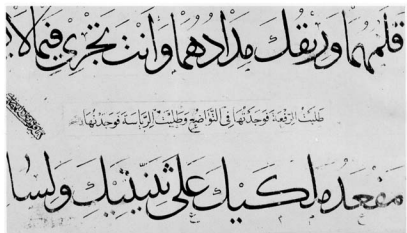 قلمهما وريقك مدادهما وأنت تجري فيما لا
طلبت الرفعة فوجدتها في التواضع وطلبت الرياسة فوجدتها
مقعد ملكيك على ثنيتيك ولسا